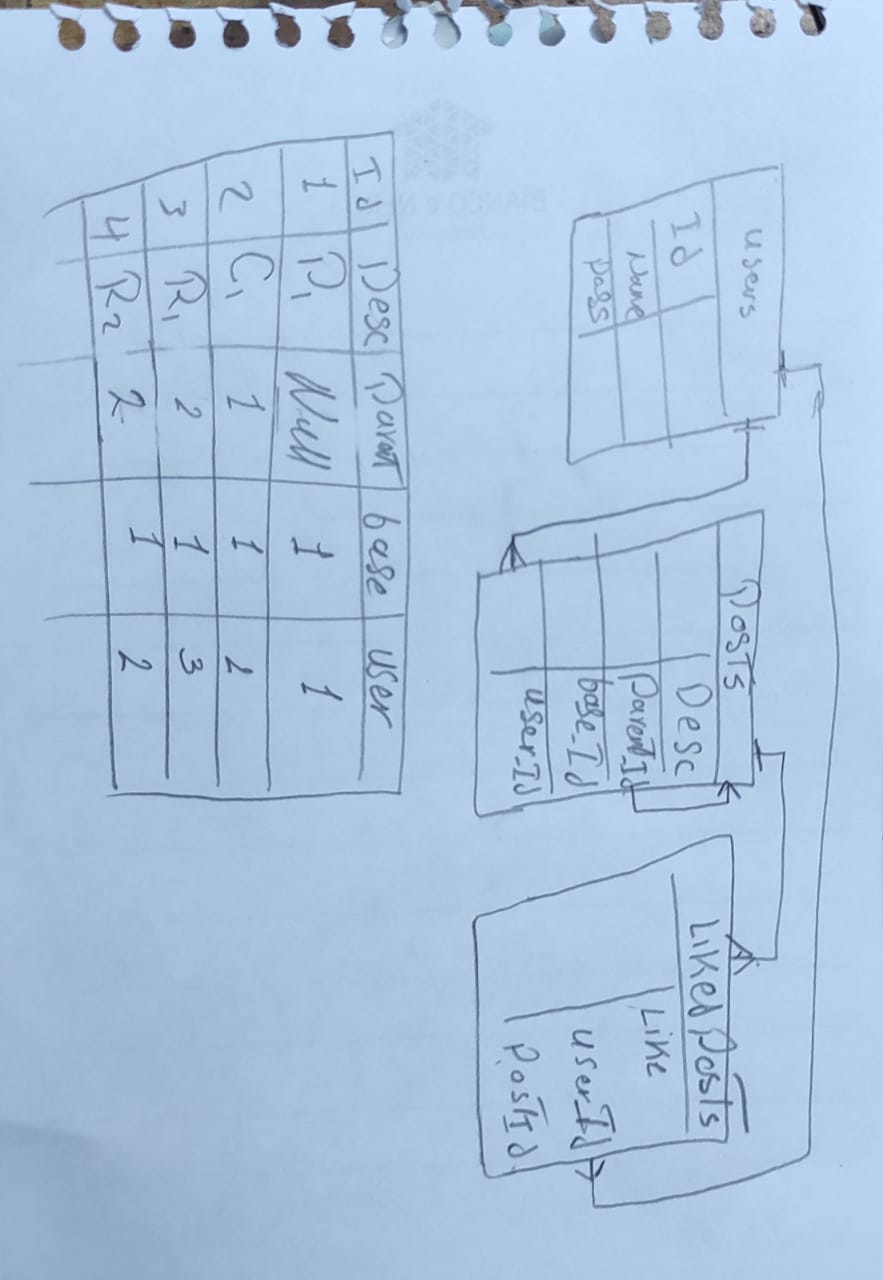 users
Id
Name
pass
Posts
Desc
Parent_Id
base_Id
user_Id
Liked Posts
Like
user_Id
PostId
Id Desc Parent base user
1 P1 Null 1 1
2 C1 1 1 2
3 R1 2 1 3
4 R2 2 1 2